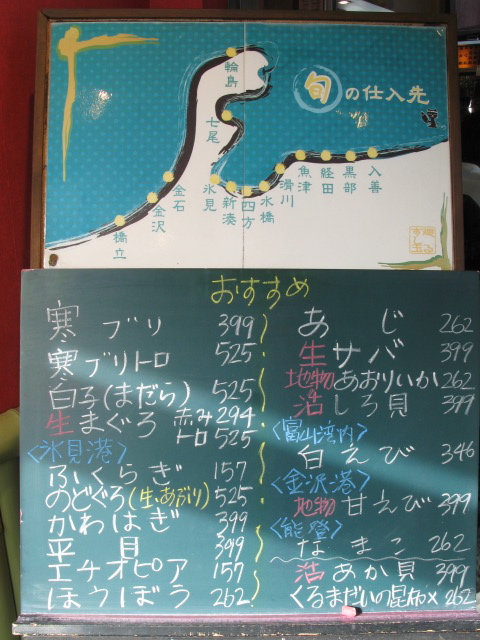 旬の仕入先
輪島
七尾
氷見
新湊
四方
水橋
滑川
魚津
経田
黒部
入善
金石
金沢
橋立
おすすめ
寒ブリ 399
寒ブリトロ 525
白子(まだら) 525
生まぐろ 赤み 294
トロ 525
〈氷見港〉
ふくらぎ 157
のどぐろ(生、あぶり) 525
かわはぎ 399
平貝 399
エチオピア 157
ほうぼう 262
あじ 262
生サバ 399
地物あおりいか 262
活しろ貝 399
〈富山湾内〉
白えび 346
〈金沢港〉
地物甘えび 399
〈能登〉
なまこ 262
活あか貝 399
くるまだいの昆布〆 262